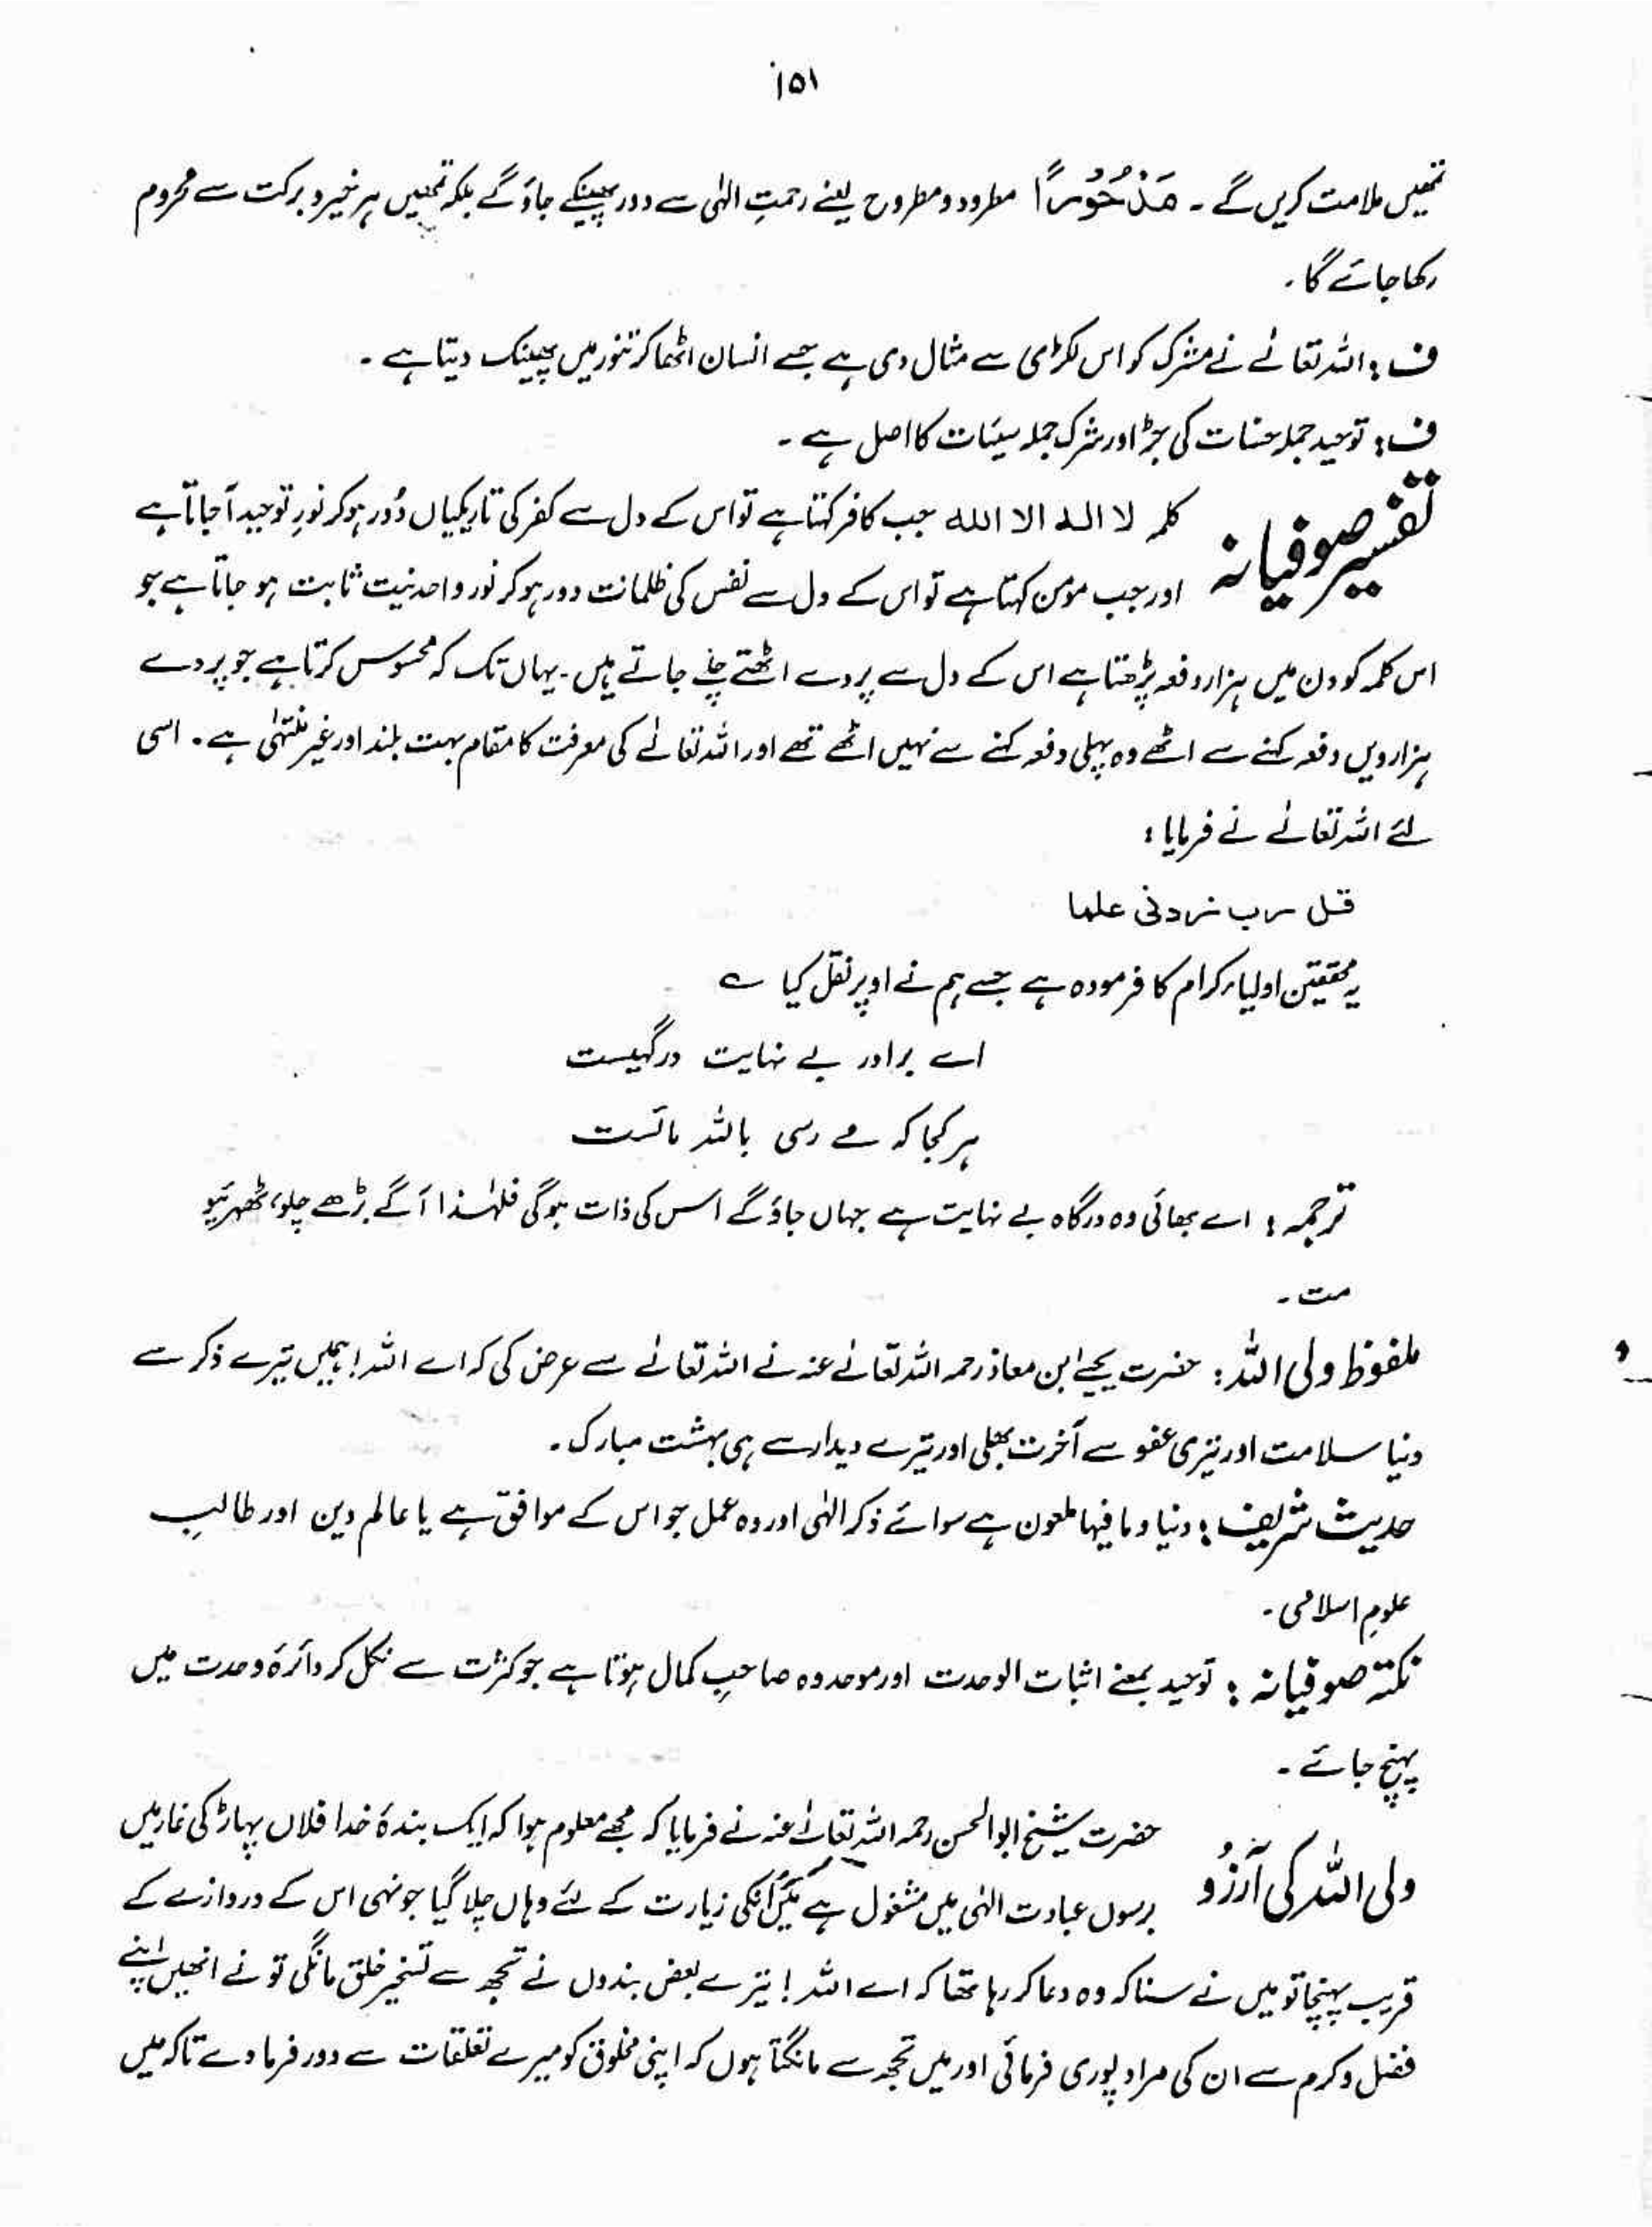 ۱۵۱
تمھیں ملامت کریں گے ۔ مَدْحُوْرًا مطرود و مطروح یعنے رحمتِ الٰہی سے دور پھینکے جاؤ گے بلکہ تمھیں ہر خیر و برکت سے محروم
رکھا جائے گا ۔
ف : اللہ تعالےٰ نے مشرک کو اس لکڑی سے مثال دی ہے جسے انسان اٹھا کر تنور میں پھینک دیتا ہے ۔
ف : توحید جملہ حسنات کی جڑ اور شرک جملہ سیئات کا اصل ہے ۔
تفسیر صوفیانہ کلمہ لا الٰہ الا اللہ جب کافر کہتا ہے تو اس کے دل سے کفر کی تاریکیاں دُور ہو کر نورِ توحید آ جاتا ہے
اور جب مومن کہتا ہے تو اس کے دل سے نفس کی ظلمات دور ہو کر نور واحدنیت ثابت ہو جاتا ہے جو
اس کلمہ کو دن میں ہزار دفعہ پڑھتا ہے اس کے دل سے پردے اٹھتے چلے جاتے ہیں ۔ یہاں تک کہ محسوس کرتا ہے جو پردے
ہزارویں دفعہ کہنے سے اٹھے وہ پہلی دفعہ کہنے سے نہیں اٹھے تھے اور اللہ تعالےٰ کی معرفت کا مقام بہت بلند اور غیر منتہیٰ ہے ۔ اسی
لئے اللہ تعالےٰ نے فرمایا :
قل رب زدنی علما
یہ محققین اولیاء کرام کا فرمودہ ہے جسے ہم نے اوپر نقل کیا ؎
اے برادر بے نہایت درگہیست
ہر کجا کہ مے رسی باللہ مائست
ترجمہ : اے بھائی وہ درگاہ بے نہایت ہے جہاں جاؤ گے اس کی ذات ہوگی فلہٰذا آگے بڑھے چلو، ٹھہریو
مت ۔
ملفوظ ولی اللہ : حضرت یحیےٰ ابن معاذ رحمہ اللہ تعالےٰ عنہ نے اللہ تعالےٰ سے عرض کی کہ اے اللہ! ہمیں تیرے ذکر سے
دنیا سلامت اور تیری عفو سے آخرت بھلی اور تیرے دیدار سے ہی بہشت مبارک ۔
حدیث شریف : دنیا و ما فیہا ملعون ہے سوائے ذکر الٰہی اور وہ عمل جو اس کے موافق ہے یا عالم دین اور طالبِ
علومِ اسلامی ۔
نکتہ صوفیانہ : توحید بمعنے اثبات الوحدت اور موحد وہ صاحبِ کمال ہوتا ہے جو کثرت سے نکل کر دائرۂ وحدت میں
پہنچ جائے ۔
ولی اللہ کی آرزُو حضرت شیخ ابو الحسن رحمہ اللہ تعالےٰ عنہ نے فرمایا کہ مجھے معلوم ہوا کہ ایک بندۂ خدا فلاں پہاڑ کی غار میں
برسوں عبادت الٰہی میں مشغول ہے میَں انکی زیارت کے لئے وہاں چلا گیا جونہی اس کے دروازے کے
قریب پہنچا تو میں نے سنا کہ وہ دعا کر رہا تھا کہ اے اللہ ! تیرے بعض بندوں نے تجھ سے تسخیر خلق مانگی تو نے انھیں اپنے
فضل و کرم سے ان کی مراد پوری فرمائی اور میں تجھ سے مانگتا ہوں کہ اپنی مخلوق کو میرے تعلقات سے دور فرما دے تاکہ میں